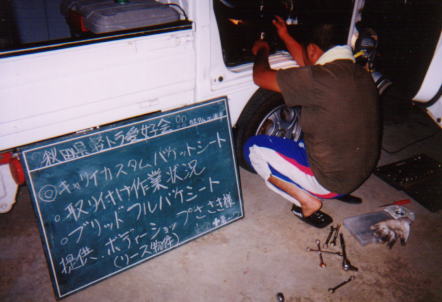 秋田県軽トラ愛好会
◎キャリイカスタムバケットシート
・取り付け作業状況
・ブリッドフルバケシート
提供:ボディーショップささき様
(リース物件)